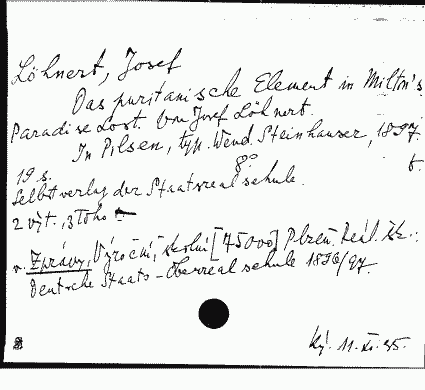 Löhnert, Josef
Das puritanische Element in Milton's
Paradise Lost. Von Josef Löhnert.
In Pilsen, typ. Wend. Steinhauser, 1897.
19 s. 8°
Selbstverlag der Staatsrealschule.
2 výt., z toho
v. Zprávy, Výroční, školní [75000] Plzeň. Reál. šk.:
Deutsche Staats-Oberrealschule 1896/97.
11. XI. 35.